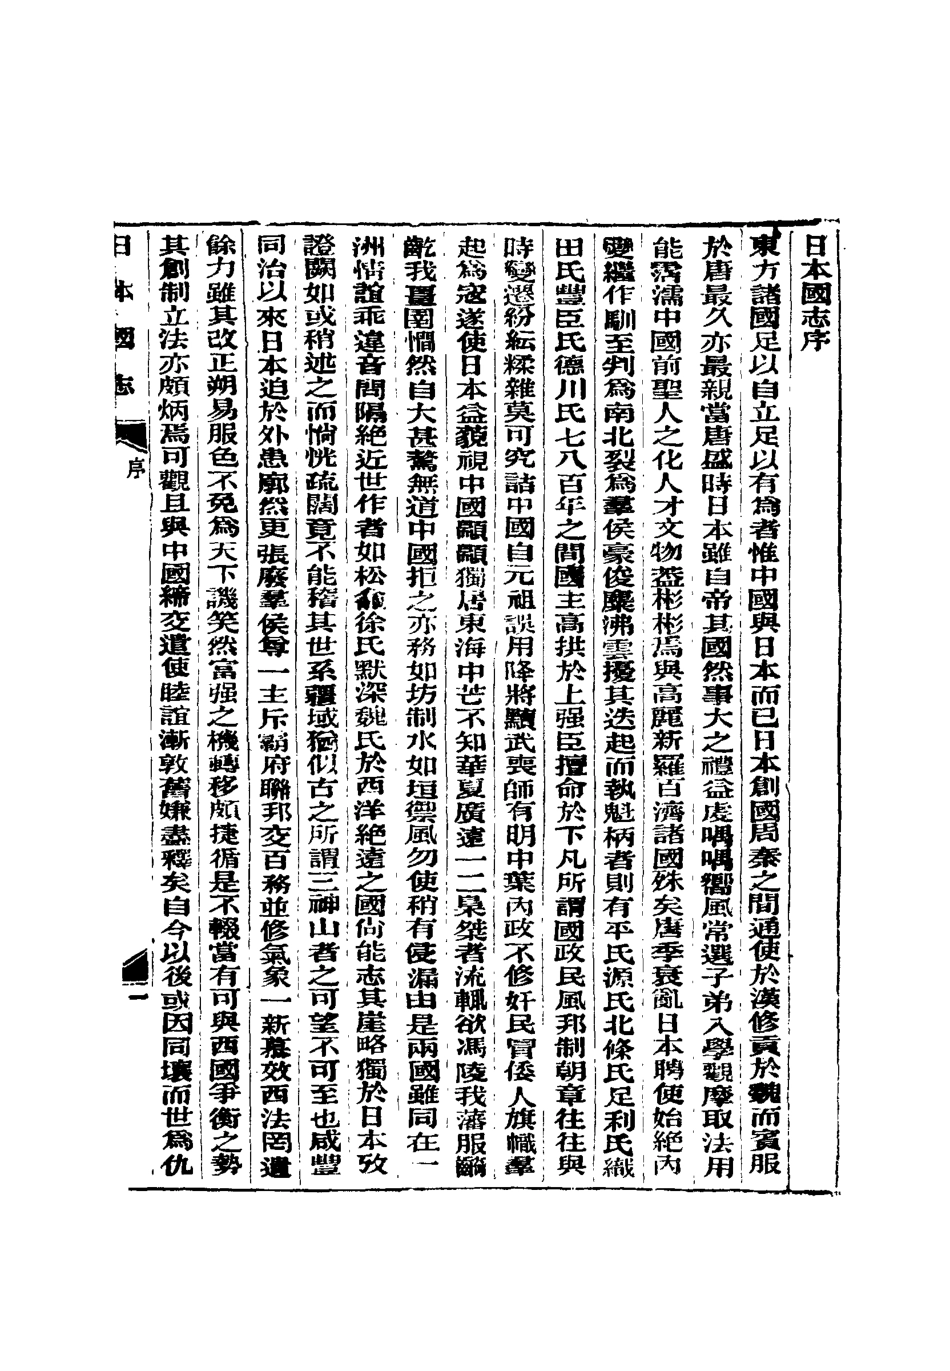 日本國志序
東方諸國足以自立足以有爲者惟中國與日本而已日本創國周秦之間通使於漢修貢於魏而賓服
於唐最久亦最親當唐盛時日本雖自帝其國然事大之禮益虔喁喁嚮風常選子弟入學觀摩取法用
能霑濡中國前聖人之化人才文物葢彬彬焉與高麗新羅百濟諸國殊矣唐季衰亂日本聘使始絕內
變繼作馴至判爲南北裂爲羣侯豪俊麋沸雲擾其迭起而執魁柄者則有平氏源氏北條氏足利氏織
田氏豐臣氏德川氏七八百年之間國主高拱於上强臣擅命於下凡所謂國政民風邦制朝章往往與
時變遷紛紜糅雜莫可究詰中國自元祖誤用降將黷武喪師有明中葉內政不修奸民冒倭人旗幟羣
起爲寇遂使日本益藐視中國顒顒獨居東海中芒不知華夏廣遠一二梟桀者流輒欲馮陵我藩服齮
齕我疆圉憪然自大甚驁無道中國拒之亦務如坊制水如垣禦風勿使稍有侵漏由是兩國雖同在一
洲情誼乖違音問隔絕近世作者如松龕徐氏默深魏氏於西洋絕遠之國尙能志其崖略獨於日本攷
證闕如或稍述之而惝恍疏闊竟不能稽其世系疆域猶似古之所謂三神山者之可望不可至也咸豐
同治以來日本迫於外患廓然更張廢羣侯尊一主斥霸府聯邦交百務並修氣象一新慕效西法罔遺
餘力雖其改正朔易服色不免爲天下譏笑然富强之機轉移頗捷循是不輟當有可與西國爭衡之勢
其創制立法亦頗炳焉可觀且與中國締交遣使睦誼漸敦舊嫌盡釋矣自今以後或因同壤而世爲仇
日本國志
序
一